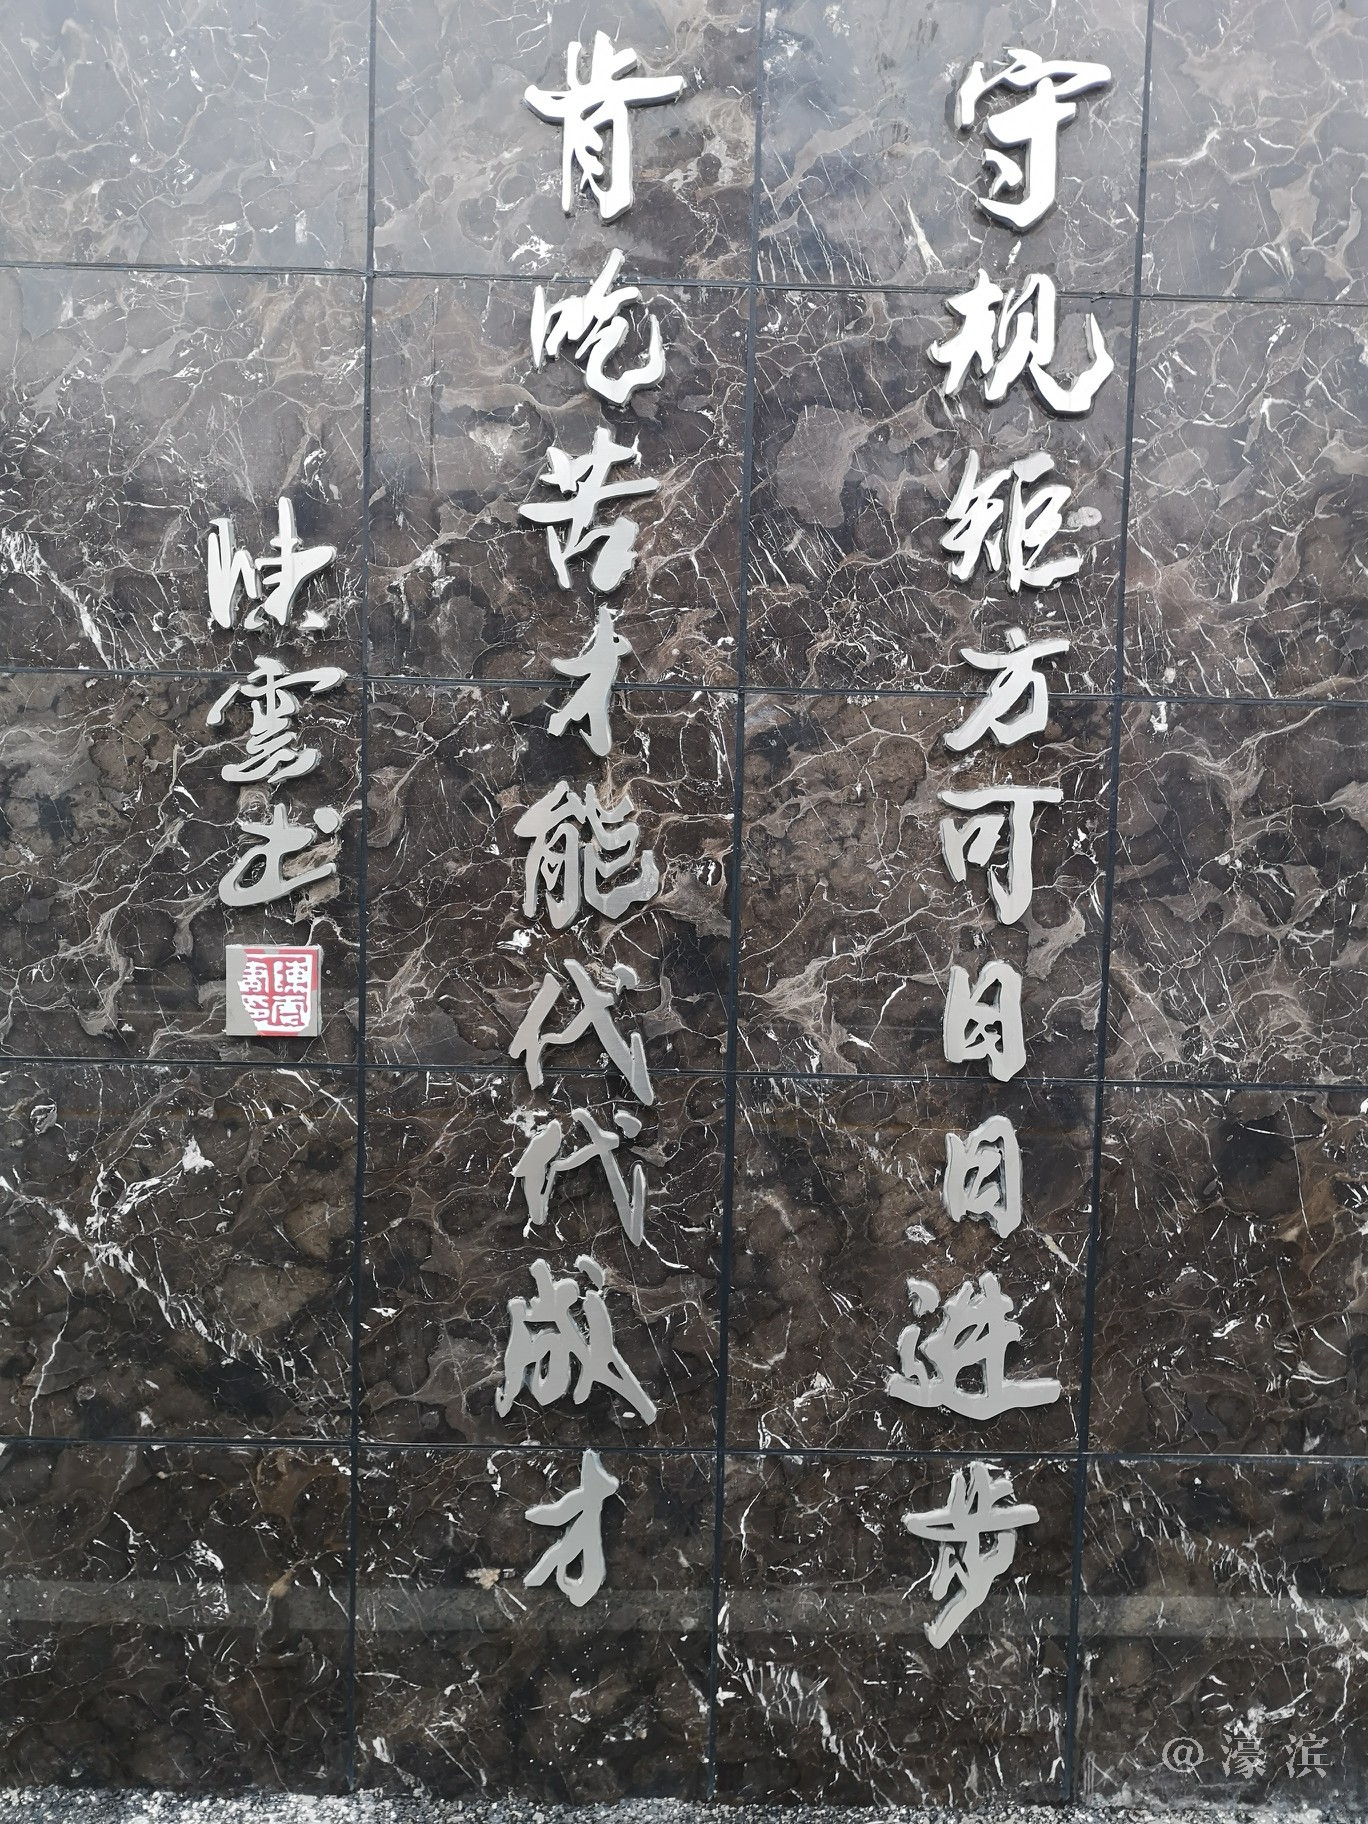 守规矩方可日日进步
肯吃苦才能代代成才
陈雲书
陈雲书印
@濠滨